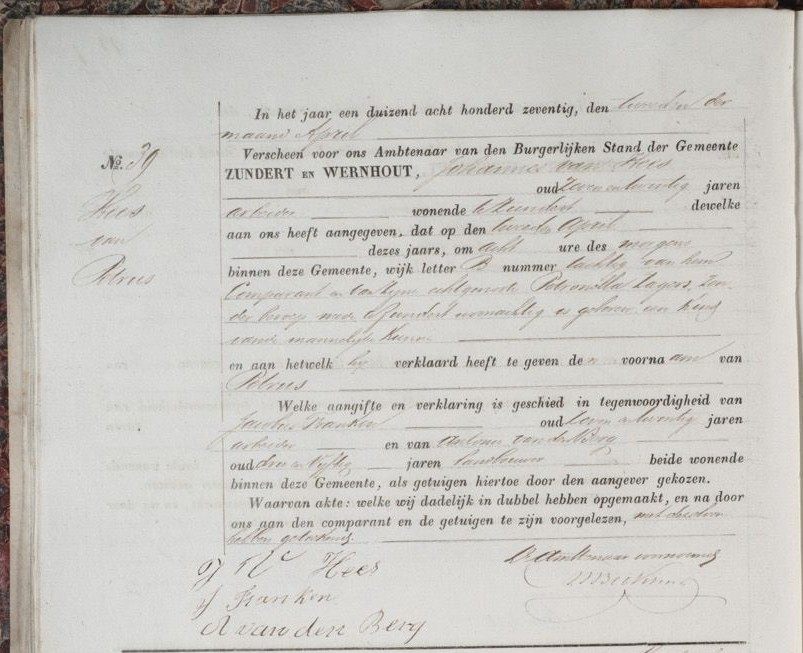 In het jaar een duizend acht honderd zeventig, den tweeden der
maand April
No. 39
Verscheen voor ons Ambtenaar van den Burgerlijken Stand der Gemeente
ZUNDERT EN WERNHOUT, Johannes van Hees
Hees
van
Petrus
oud zeven en twintig jaren
arbeider wonende te Zundert dewelke
aan ons heeft aangegeven, dat op den tweeden April
dezes jaars, om acht ure des morgens
binnen deze Gemeente, wijk letter B nummer tachtig van hem
Comparant en van zijne echtgenoote Petronilla Lagers, zon-
der beroep mede te Zundert woonachtig is geboren een kind
van de mannelijke kunne
en aan hetwelk hij verklaard heeft te geven de n voornaam van
Petrus
Welke aangifte en verklaring is geschied in tegenwoordigheid van
Jacobus Franken oud zeven en twintig jaren
arbeider en van Antonie van den Berg
oud drie en vijftig jaren landbouwer beide wonende
binnen deze Gemeente, als getuigen hiertoe door den aangever gekozen.
Waarvan akte: welke wij dadelijk in dubbel hebben opgemaakt, en na door
ons aan den comparant en de getuigen te zijn voorgelezen, met dezelve
hebben geteekend.
J V Hees
De Ambtenaar voornoemd
J Franken
A van den Berg